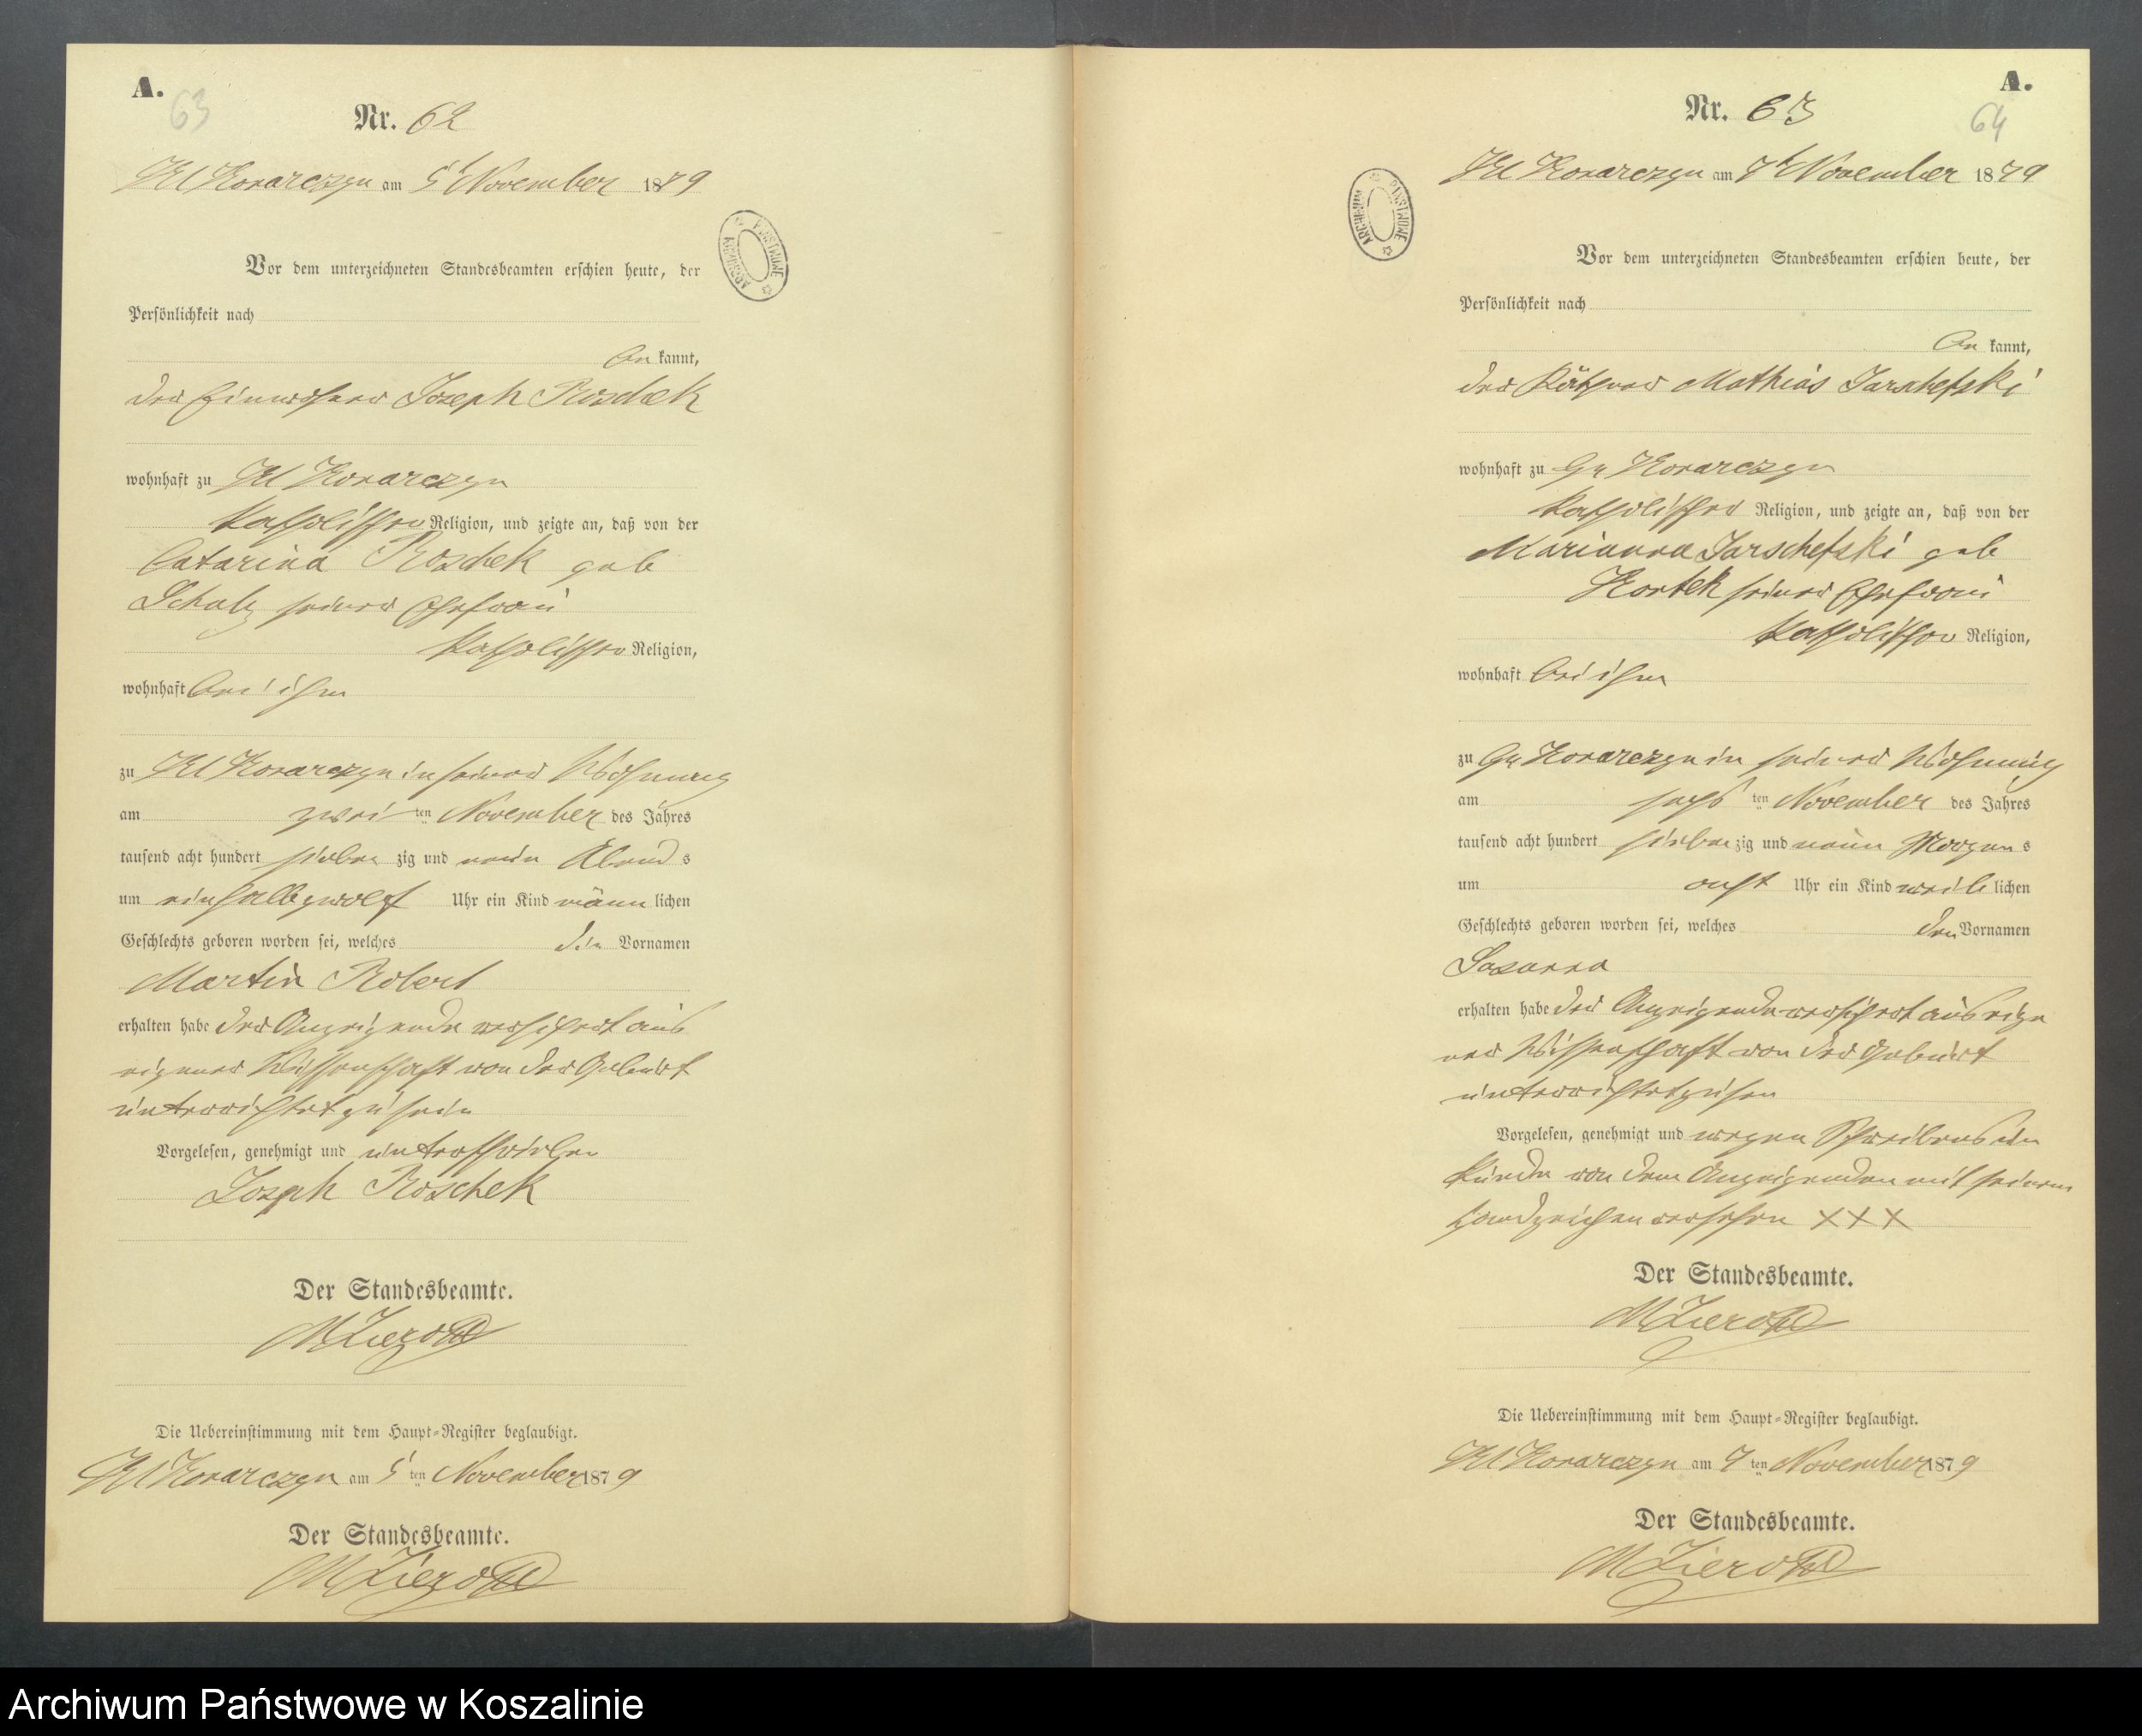 A.
63
Nr. 62
Kl Konarczyn am 5t November 1879
Vor dem unterzeichneten Standesbeamten erschien heute, der
Persönlichkeit nach
be kannt,
der Einwohner Joseph Roschek
wohnhaft zu Kl Konarczyn
katholischer Religion, und zeigte an, daß von der
Catarina Roschek geb
Schulz seiner Ehefrau
katholischer Religion,
wohnhaft bei ihm
zu Kl Konarczyn in seiner Wohnung
am zwei ten November des Jahres
tausend acht hundert sieben zig und neun Abend s
um einhalbzwolf Uhr ein Kind männ lichen
Geschlechts geboren worden sei, welches die Vornamen
Martin Robert
erhalten habe der Anzeigende versichert aus
eigener Wissenschaft von der Geburt
unterrichtet zu sein
Vorgelesen, genehmigt und unterschrieben
Joseph Roschek
Der Standesbeamte.
Die Uebereinstimmung mit dem Haupt-Register beglaubigt.
Kl Konarczyn am 5 ten November 1879
Der Standesbeamte.
A.
64
Nr. 63
Kl Konarczyn am 7t November 1879
ARCHIWUM PAŃSTWOWE
Vor dem unterzeichneten Standesbeamten erschien heute, der
Persönlichkeit nach
be kannt,
der Käthner Mathias Jarschefski
wohnhaft zu Gr Konarczyn
katholischer Religion, und zeigte an, daß von der
Marianna Jarschefski geb
Kortek seiner Ehefrau
katholischer Religion,
wohnhaft bei ihm
zu Gr Konarczyn in seiner Wohnung
am sechs ten November des Jahres
tausend acht hundert sieben zig und neun Morgen s
um acht Uhr ein Kind weib lichen
Geschlechts geboren worden sei, welches den Vornamen
Susanna
erhalten habe der Anzeigende versichert aus eige
ner Wissenschaft von der Geburt
unterrichtet zu sein
Vorgelesen, genehmigt und wegen Schreibens un
kunde von dem Anzeigenden mit seinem
Handzeichen versehen XXX
Der Standesbeamte.
Die Uebereinstimmung mit dem Haupt-Register beglaubigt.
Kl Konarczyn am 7 ten November 1879
Der Standesbeamte.
Archiwum Państwowe w Koszalinie